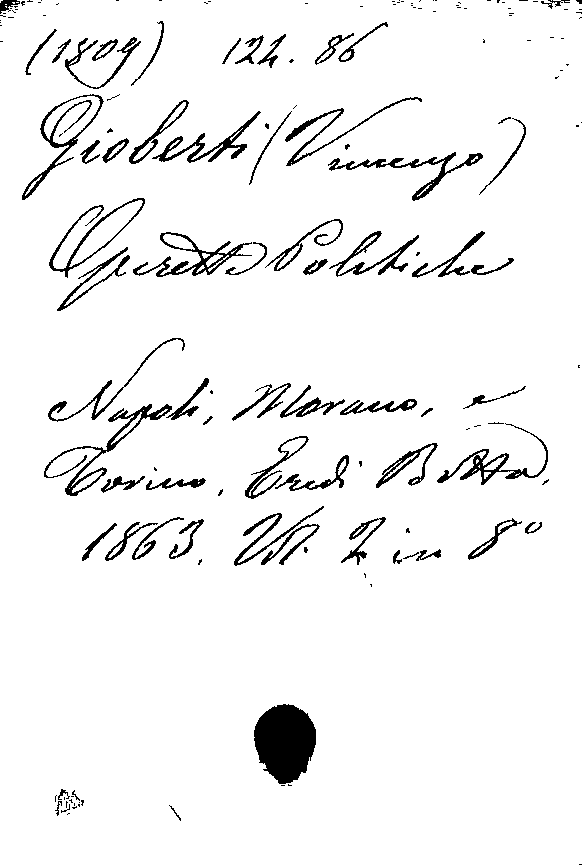 (1809) 124. 86
Gioberti (Vincenzo)
Operette Politiche
Napoli, Morano, e
Torino, Eredi Botta,
1863. Vol. 2 in 8º